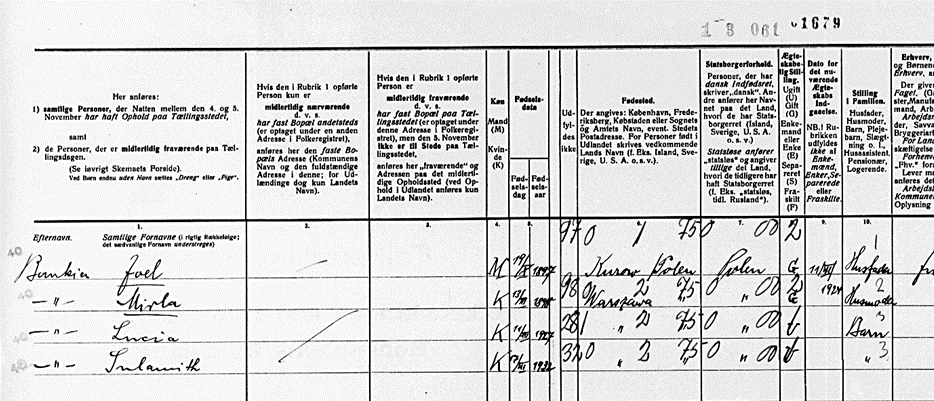 1 3 061 01679
Her anføres:
1) samtlige Personer, der Natten mellem den 4. og 5.
November har haft Ophold paa Tællingsstedet,
samt
2) de Personer, der er midlertidig fraværende paa Tæl-
lingsdagen.
(Se iøvrigt Skemaets Forside).
Ved Børn endnu uden Navn sættes „Dreng“ eller „Pige“.
Hvis den i Rubrik 1 opførte
Person kun er
midlertidig nærværende
d. v. s.
har fast Bopæl andetsteds
(er optaget under en anden
Adresse i Folkeregistret),
anføres her den faste Bo-
pæls Adresse (Kommunens
Navn og den fuldstændige
Adresse i denne; for Ud-
lændinge dog kun Landets
Navn).
Hvis den i Rubrik 1 opførte
Person er
midlertidig fraværende
d. v. s.
har fast Bopæl paa Tællings-
stedet (er optaget under
denne Adresse i Folkeregi-
stret), men den 5. November
ikke er til Stede paa Tæl-
lingsstedet,
anføres her „fraværende“ og
Adressen paa det midler-
tidige Opholdssted (ved Op-
hold i Udlandet anføres kun
Landets Navn).
Køn
Mand
(M)
Kvin-
de
(K)
Fødsels-
dato
Fød-
sels-
dag
Fød-
sels-
aar
Ud-
fyl-
des
ikke
Fødested.
Der angives: København, Frede-
riksberg, Købstaden eller Sognets
og Amtets Navn, event. Stedets
Postadresse. For Personer født i
Udlandet skrives vedkommende
Lands Navn (f. Eks. Island, Sve-
rige, U. S. A. o. s. v.).
Statsborgerforhold.
Personer, der har
dansk Indfødsret,
skriver „dansk“. An-
dre anfører her Nav-
net paa det Land,
hvori de har Stats-
borgerret (Island,
Sverige, U. S. A.
o. s. v.).
Statsløse anfører
„statsløs“ og angiver
tillige det Land,
hvori de tidligere har
haft Statsborgerret
(f. Eks. „statsløs,
tidl. Rusland“).
Ægte-
skabe-
lig Stil-
ling.
Ugift
(U)
Gift
(G)
Enke-
mand
eller
Enke
(E)
Sepa-
reret
(S)
Fra-
skilt
(F)
Dato for
det nu-
værende
Ægte-
skabs
Ind-
gaaelse.
NB.! Ru-
brikken
udfyldes
ikke af
Enke-
mænd,
Enker, Se-
parerede
eller
Fraskilte.
Stilling
i Familien.
Husfader,
Husmoder,
Barn, Pleje-
barn, Slægt-
ning o. l.,
Husassistent,
Pensionær,
Logerende.
Erhverv,
og Børnene
Erhverv, a
Der give
Faget. (G
1. 2. 3. 4. 5. 7. 8. 9. 10.
Efternavn. Samtlige Fornavne (i rigtig Rækkefølge;
det sædvanlige Fornavn understreges)
97 0 7 75 0 00 2 1
40 Joel M 1897 Kurow Polen Polen G 1924 Husfader
40 — " — Mirla K 98 2 75 0 " 00 2
Warszawa G Husmoder 2
40 — " — Lucia K 1927 28 1 " 2 75 0 " 00 Barn 3
40 — " — Sulamith K 32 0 " 2 75 0 " 00 " 3